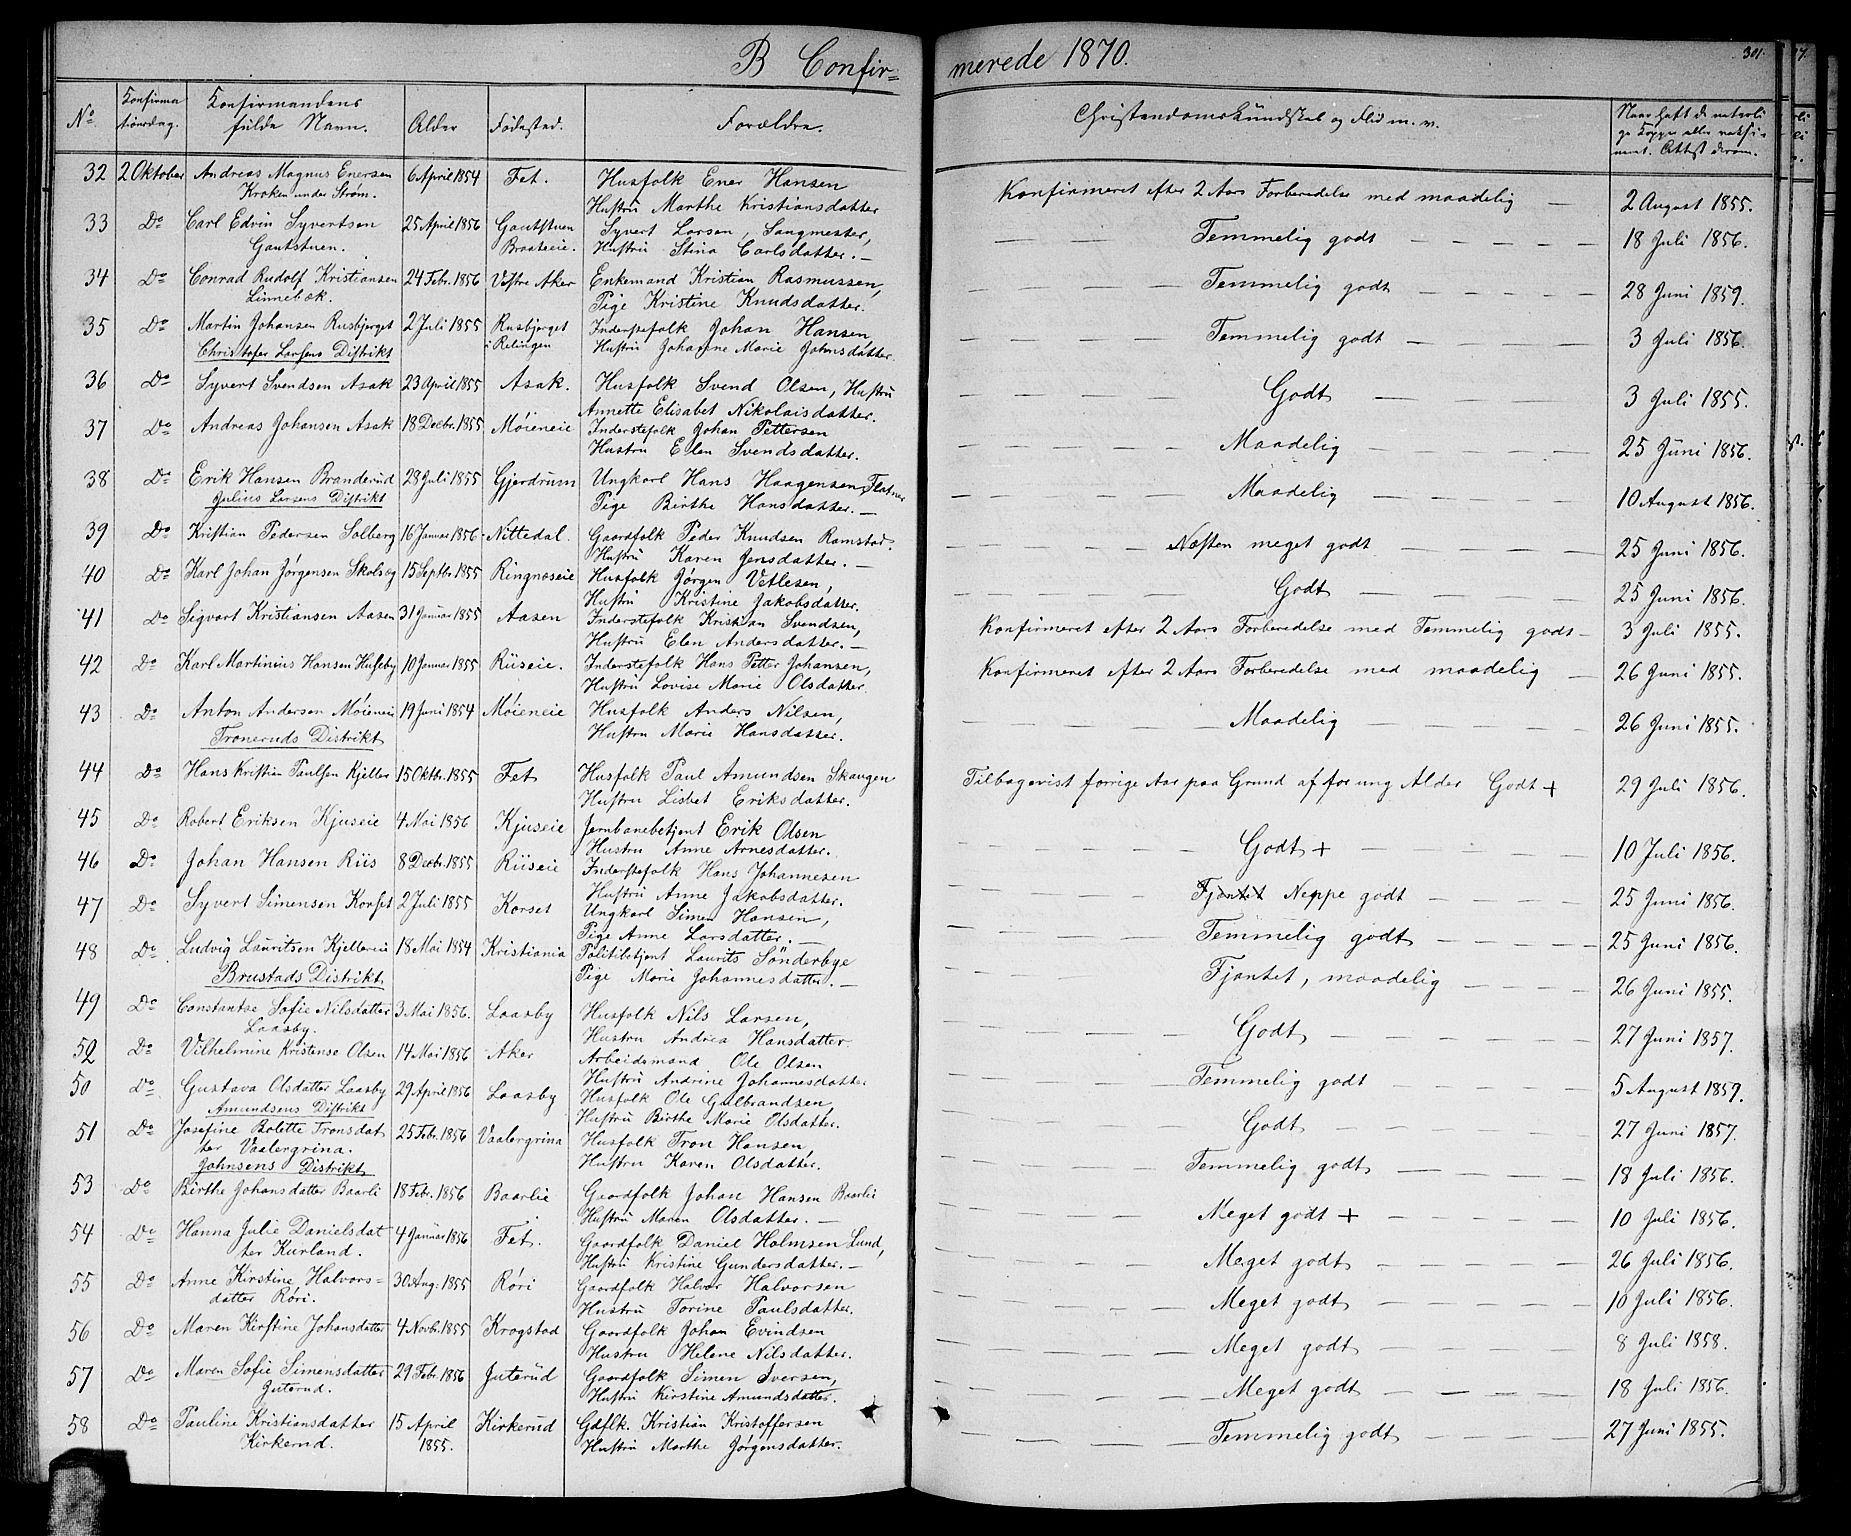 B Confir-
merede 1870.
301.
No
Konfirma
tionsdag.
Konfirmandens
fulde Navn.
Alder
Fødested.
Forældre.
Christendomskundskab og Flid m. v.
Naar haft de naturli
ge Kopper eller vaksi-
neret. Attest derom.
32 2 Oktober Andreas Magnus Enersen 6 April 1854 Fet. Husfolk Ener Hansen
Kroken under Strøm. Hustru Marthe Kristiansdatter
Konfirmeret efter 2 Aars Forberedelse med maadelig — 2 August 1855.
33 Do Carl Edvin Syvertsen 25 April 1856 Gautstuen Syvert Larsen, Sangmester,
Gautstuen. Braateeie. Hustru Stina Carlsdatter. —
Temmelig godt 18 Juli 1856.
34 Do Conrad Rudolf Kristiansen 24 Febr. 1856 Vestre Aker Enkemand Kristian Rasmussen,
Linnebæk. Pige Kristine Knudsdatter.
Temmelig godt 28 Juni 1859.
35 Do Martin Johansen Rusbjerget 2 Juli 1855 Rusbjerget Inderstefolk Johan Hansen,
Christofer Larsens Distrikt i Relingen Hustru Johanne Marie Johnsdatter.
Temmelig godt 3 Juli 1856.
36 Do Syvert Svendsen Asak 23 April 1855 Asak. Husfolk Svend Olsen, Hustru
Annette Elisabet Nikolaisdatter.
Godt 3 Juli 1855.
37 Do Andreas Johansen Asak 18 Decbr. 1855 Møieneie Inderstefolk Johan Pettersen
Hustru Elen Svendsdatter.
Maadelig 25 Juni 1856.
38 Do Erik Hansen Branderud 28 Juli 1855 Gjerdrum Ungkarl Hans Haagensen Flatner
Julius Larsens Distrikt Pige Birthe Hansdatter. —
Maadelig 10 August 1856.
39 Do Kristian Pedersen Solberg 16 Januar 1856 Nittedal. Gaardfolk Peder Knudsen Ramstad.
Hustru Karen Jensdatter. —
Næsten meget godt 25 Juni 1856.
40 Do Karl Johan Jørgensen Skolsæg 15 Septbr. 1855 Ringnæseie Husfolk Jørgen Vetlesen,
Hustru Kristine Jakobsdatter.
Godt 25 Juni 1856.
41 Do Sigvart Kristiansen Aasen 31 Januar 1855 Aasen Inderstefolk Kristian Svendsen,
Hustru Elen Andersdatter. —
Konfirmeret efter 2 Aars Forberedelse med Temmelig godt — 3 Juli 1855.
42 Do Karl Martinius Hansen Huseby 10 Januar 1855 Riiseie. Inderstefolk Hans Petter Johansen,
Hustru Lovise Marie Olsdatter.
Konfirmeret efter 2 Aars Forberedelse med maadelig — 26 Juni 1855.
43 Do Anton Andersen Møieneie 19 Juni 1854 Møieneie Husfolk Anders Nilsen,
Troneruds Distrikt Hustru Marie Hansdatter.
Maadelig 26 Juni 1855.
44 Do Hans Kristian Paulsen Kjeller 15 Oktbr. 1855 Fet Husfolk Paul Amundsen Skaugen
Hustru Lisbet Eriksdatter.
Tilbagevist forrige Aar paa Grund af for ung Alder Godt + 29 Juli 1856.
45 Do Robert Eriksen Kjuseie 4 Mai 1856 Kjuseie Jernbanebetjent Erik Olsen
Hustru Anne Arnesdatter.
Godt + 10 Juli 1856.
46 Do Johan Hansen Riis 8 Decbr. 1855 Riiseie Inderstefolk Hans Johannesen
Hustru Anne Jakobsdatter.
Fjantet Neppe godt 25 Juni 1856.
47 Do Syvert Simensen Korset 2 Juli 1855 Korset Ungkarl Simen Hansen,
Pige Anne Larsdatter. —
Temmelig godt 25 Juni 1856.
48 Do Ludvig Lauritsen Kjellereie 18 Mai 1854 Kristiania Politibetjent Laurits Sönderbye
Brustads Distrikt Pige Marie Johannesdatter. —
Fjantet, maadelig 26 Juni 1855.
49 Do Constantse Sofie Nilsdatter 3 Mai 1856. Laasby Husfolk Nils Larsen,
Laasby. Hustru Andrea Hansdatter
Godt 27 Juni 1857.
52 Do Vilhelmine Kristense Olsen 14 Mai 1856 Aker Arbeidsmand Ole Olsen
Hustru Andrine Johannesdatter
Temmelig godt 5 August 1859.
50 Do Gustava Olsdatter Laasby 29 April 1856 Laasby Husfolk Ole Gulbrandsen,
Amundsens Distrikt Hustru Birthe Marie Olsdatter.
Godt 27 Juni 1857.
51 Do Josefine Bolette Tronsdat 25 Febr. 1856 Vaalergrina Husfolk Tron Hansen,
ter Vaalergrina. Hustru Karen Olsdatter.
Johnsens Distrikt
Temmelig godt 18 Juli 1856.
53 Do Birthe Johansdatter Baarli 18 Febr. 1856 Baarlie Gaardfolk Johan Hansen Baarli
Hustru Maren Olsdatter. —
Meget godt + 10 Juli 1856.
54 Do Hanna Julie Danielsdat 4 Januar 1856 Fet. Gaardfolk Daniel Holmsen Lund,
ter Kurland. Hustru Kristine Gundersdatter. —
Meget godt 26 Juli 1856.
55 Do Anne Kirstine Halvors= 30 Aug. 1855 Røri Gaardfolk Halvor Halvorsen
datter Røri. Hustru Torine Paulsdatter.
Meget godt 10 Juli 1856.
56 Do Maren Kirstine Johansdatter 4 Novbr. 1855 Krogstad Gaardfolk Johan Evindsen
Hustru Helene Nilsdatter.
Meget godt 8 Juli 1858.
57 Do Maren Sofie Simensdatter 29 Febr. 1856 Juterud Gaardfolk Simen Iversen,
Juterud. Hustru Kirstine Amundsdatter.
Meget godt 18 Juli 1856.
58 Do Pauline Kristiansdatter 15 April Kirkerud Gdflk. Kristian Kristoffersen
Kirkerud. 1855. Hustru Marthe Jørgensdatter.
Temmelig godt 27 Juni 1855.